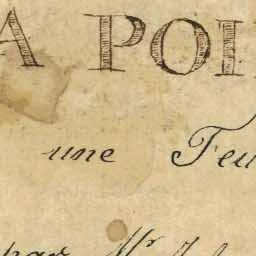 A POI
une Feu
par Mr